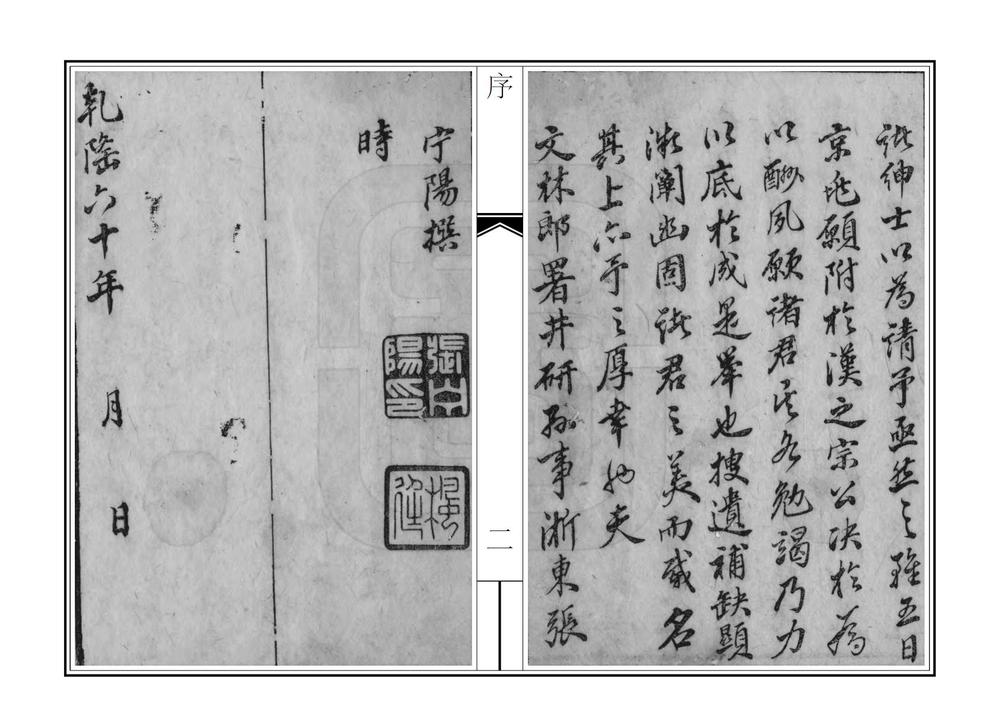 諸紳士以為請予亟然之雖五日
京兆願附於漢之宗公决於為
以酬夙願諸君其各勉竭乃力
以底於成是舉也搜遺補缺顯
微闡幽固諸君之美而啟名
其上亦予之厚幸也夫
文林郎署井研縣事浙東張
宁陽撰
時
乾隆六十年 月 日
張宁陽印
序
二